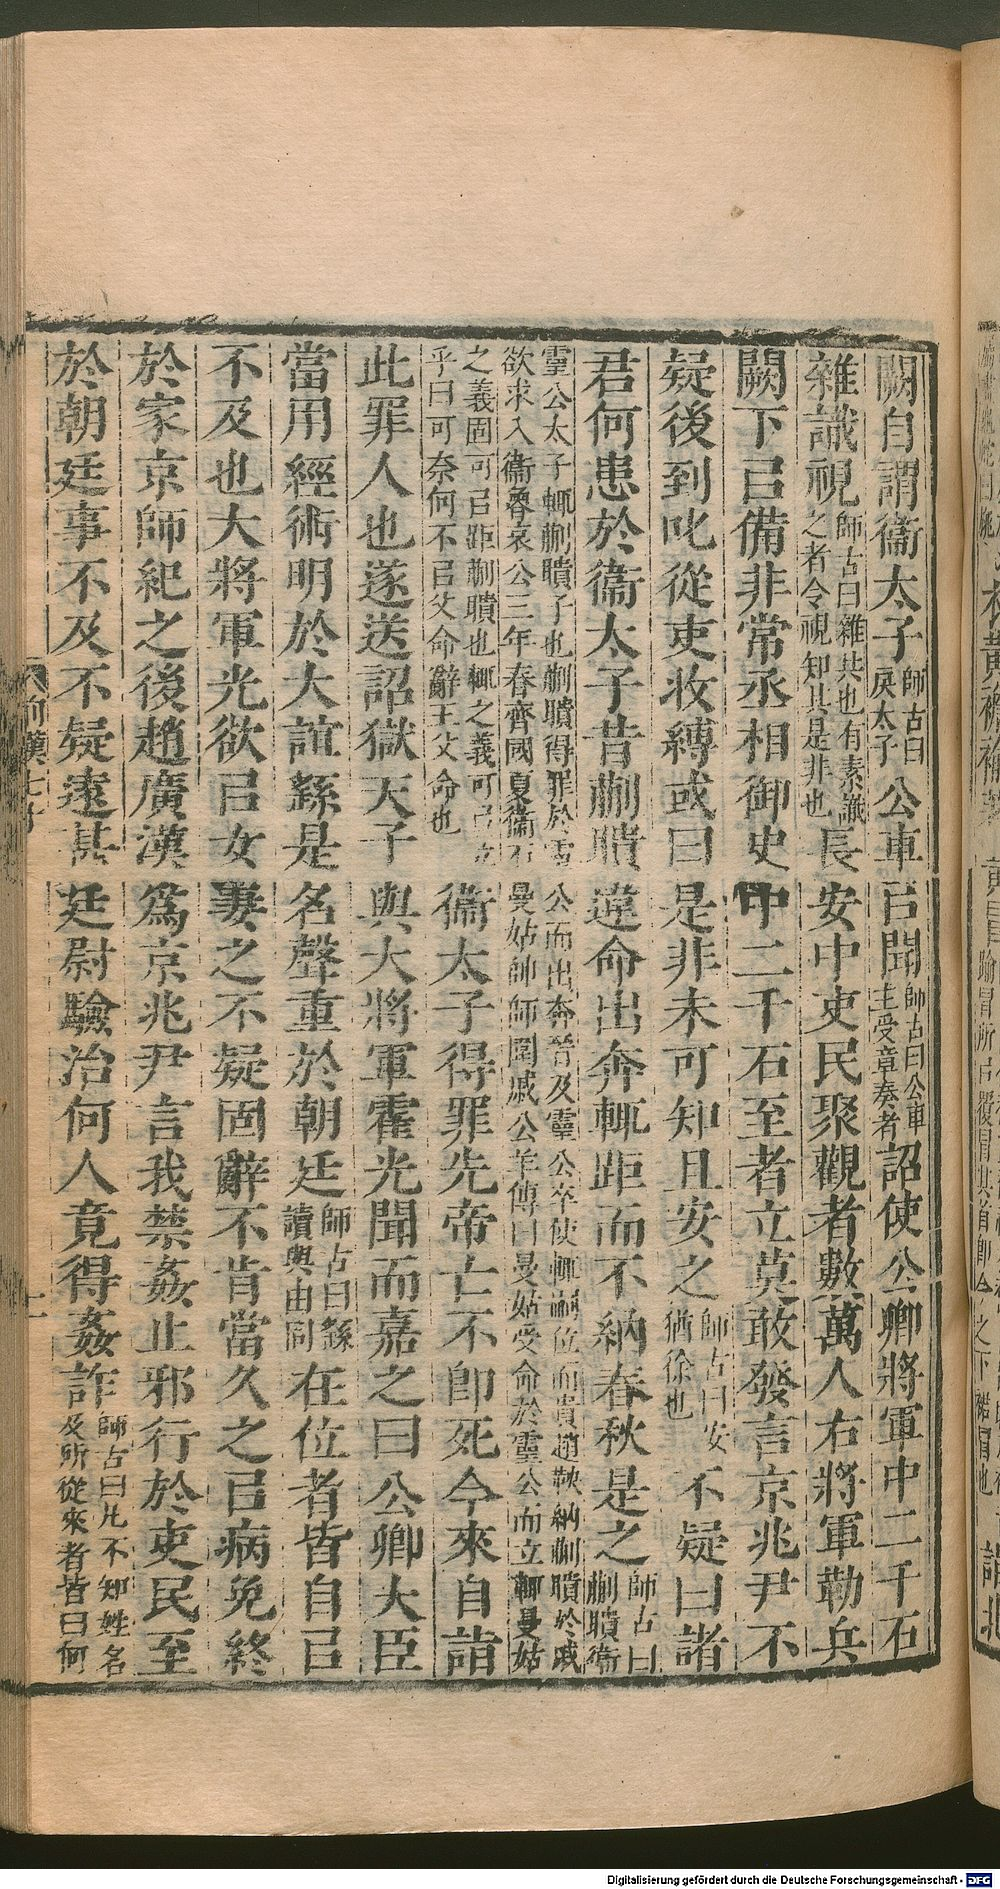 闕自謂衞太子師古曰戾太子公車㠯聞師古曰公車主受章奏者詔使公卿將軍中二千石
雜識視師古曰雜共也有素識之者令視知其是非也長安中吏民聚觀者數萬人右將軍勒兵
闕下㠯備非常丞相御史中二千石至者立莫敢發言京兆尹不
疑後到叱從吏收縛或曰是非未可知且安之師古曰安猶徐也不疑曰諸
君何患於衞太子昔蒯聵違命出奔輒距而不納春秋是之師古曰蒯聵衞
靈公太子輒蒯聵子也蒯聵得罪於靈公而出奔晉及靈公卒使輒嗣位而晉趙鞅納蒯聵於戚
欲求入衞魯哀公三年春齊國夏衞石曼姑帥師圍戚公羊傳曰曼姑受命於靈公而立輒曼姑
之義固可㠯距蒯聵也輒之義可㠯立乎曰可奈何不㠯父命辭王父命也衞太子得罪先帝亡不即死今來自詣
此罪人也遂送詔獄天子與大將軍霍光聞而嘉之曰公卿大臣
當用經術明於大誼繇是名聲重於朝廷師古曰繇讀與由同在位者皆自㠯
不及也大將軍光欲㠯女妻之不疑固辭不肯當久之㠯病免終
於家京師紀之後趙廣漢爲京兆尹言我禁姦止邪行於吏民至
於朝廷事不及不疑遠甚廷尉驗治何人竟得姦詐師古曰凡不知姓名及所從來者皆曰何
Digitalisierung gefördert durch die Deutsche Forschungsgemeinschaft - DFG